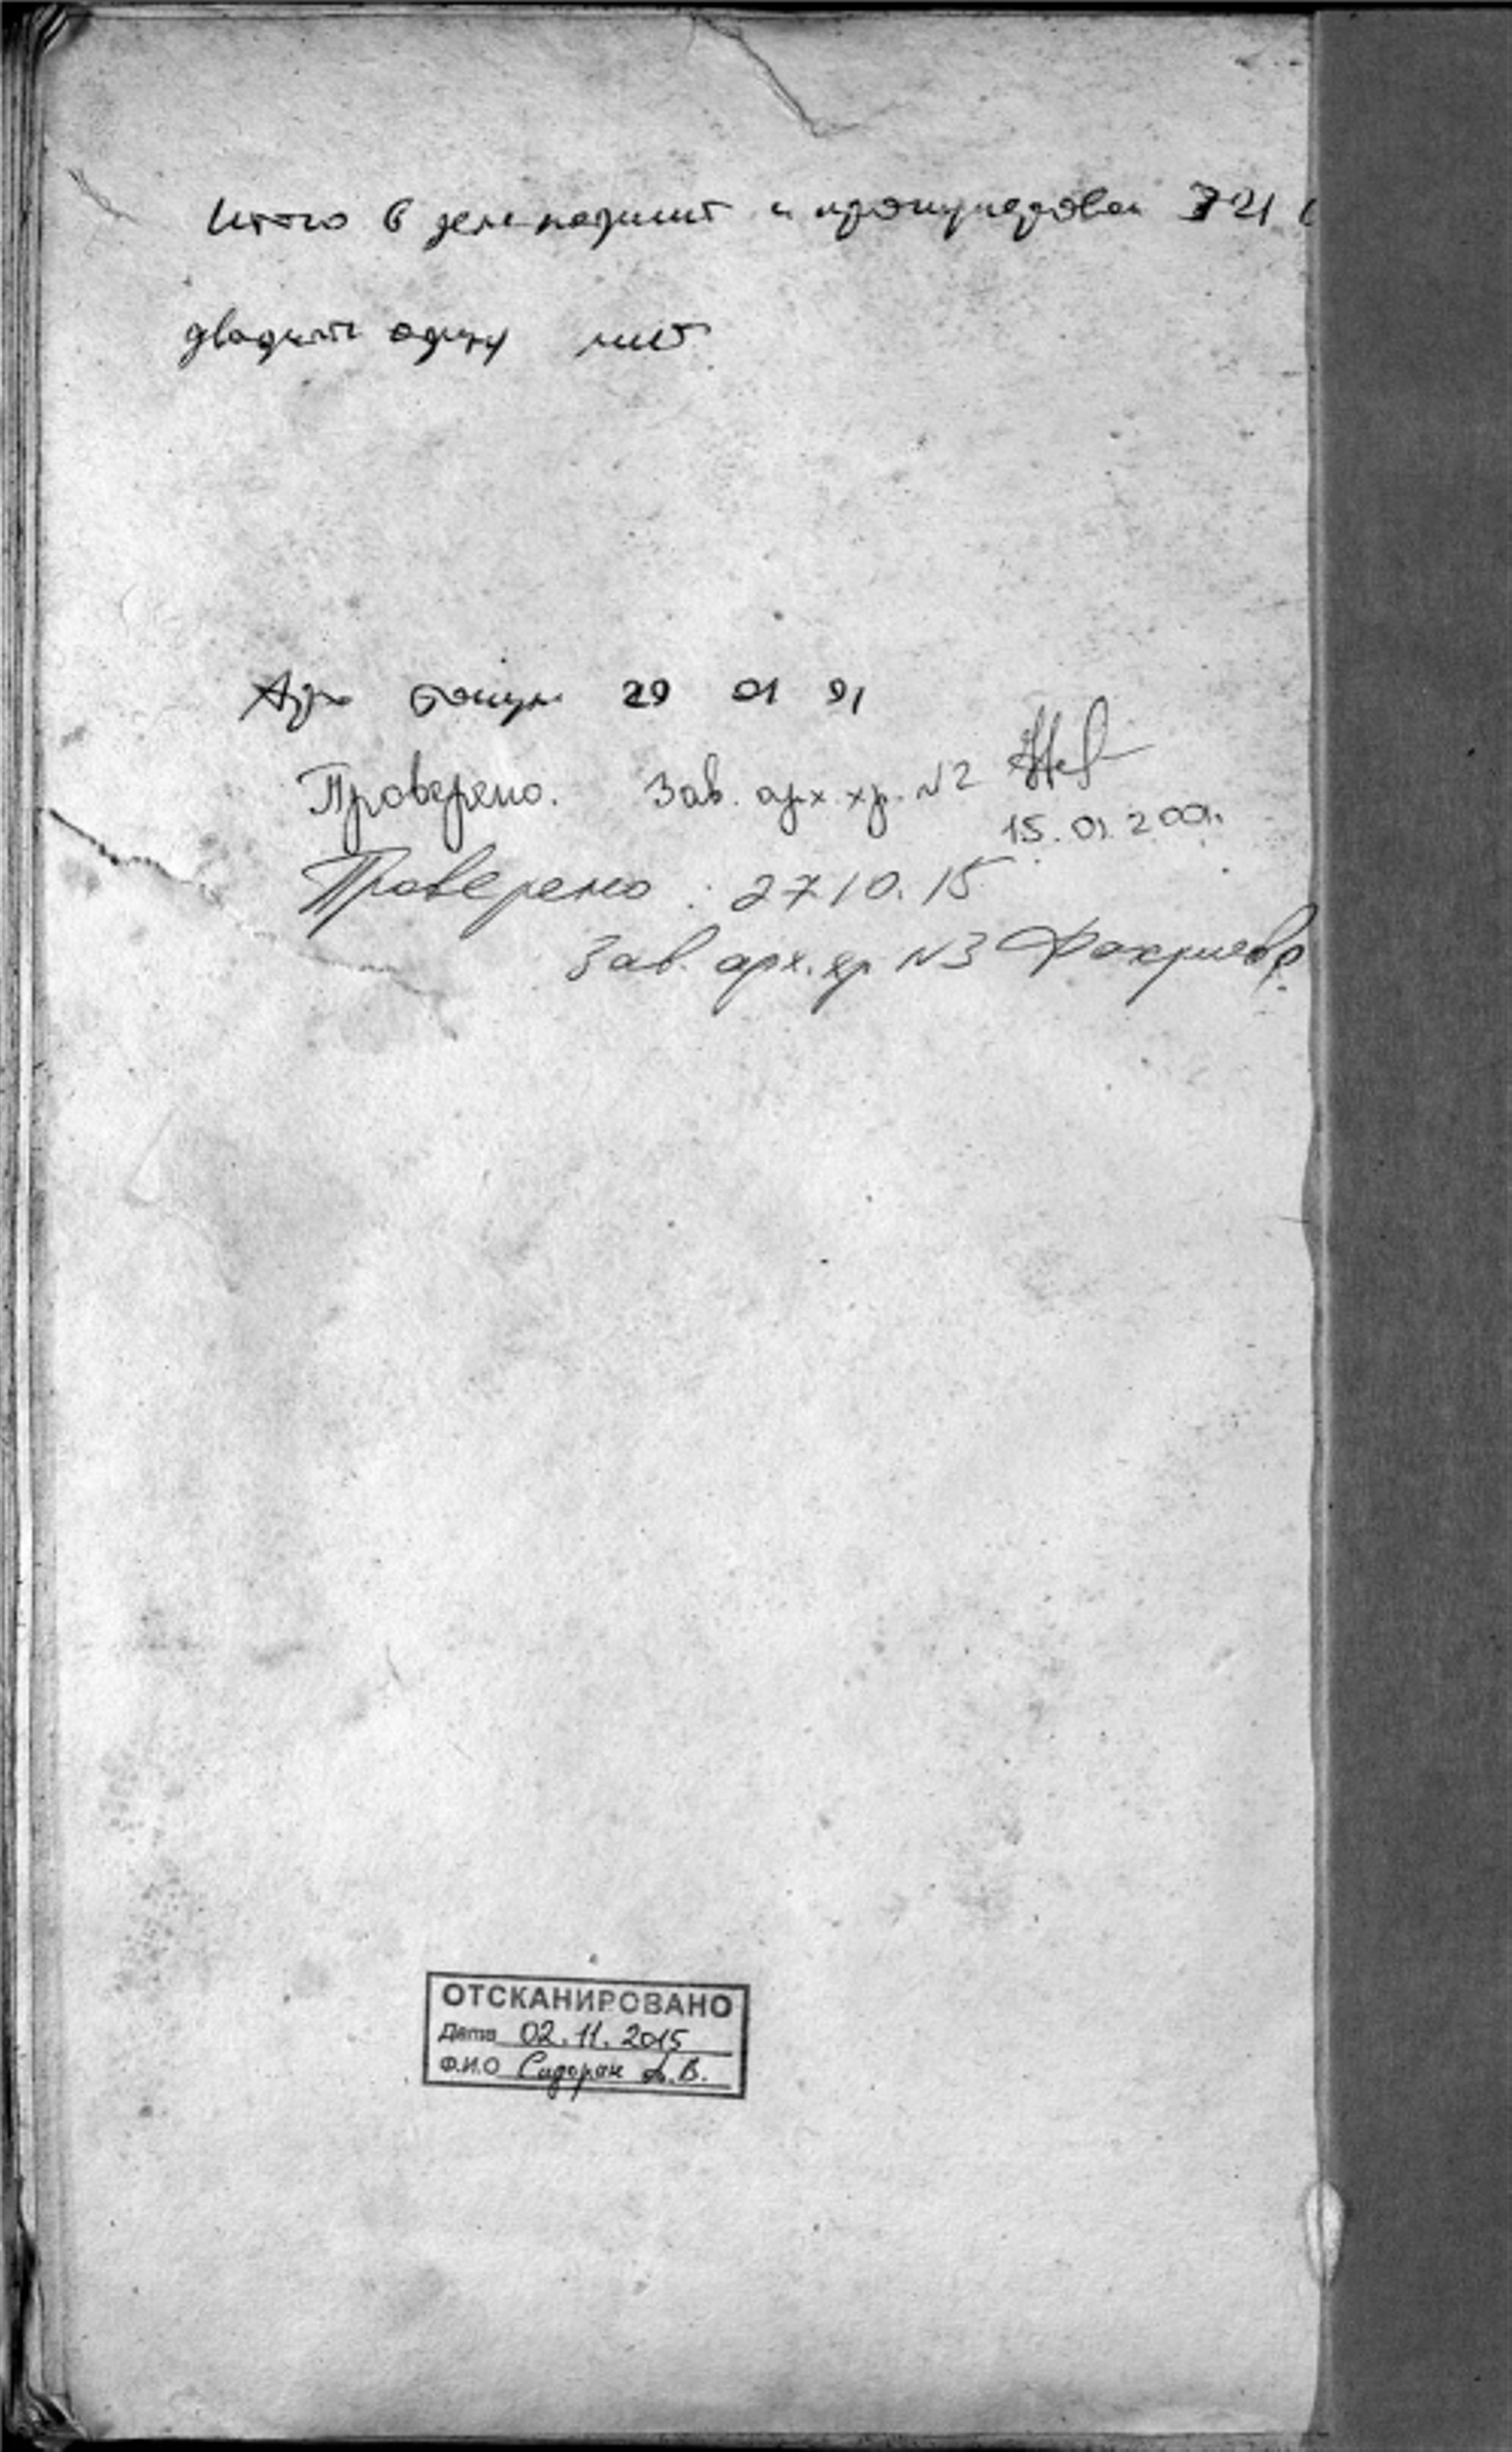 Итого в деле подшит и пронумерован 321 (
двадцать один лист
29 01 91
Проверено. Зав. арх. хр. №2
15.01.2001.
Проверено: 27.10.15
Зав. арх. хр №3
ОТСКАНИРОВАНО
Дата 02.11.2015
Ф.И.О Сидорак А.В.